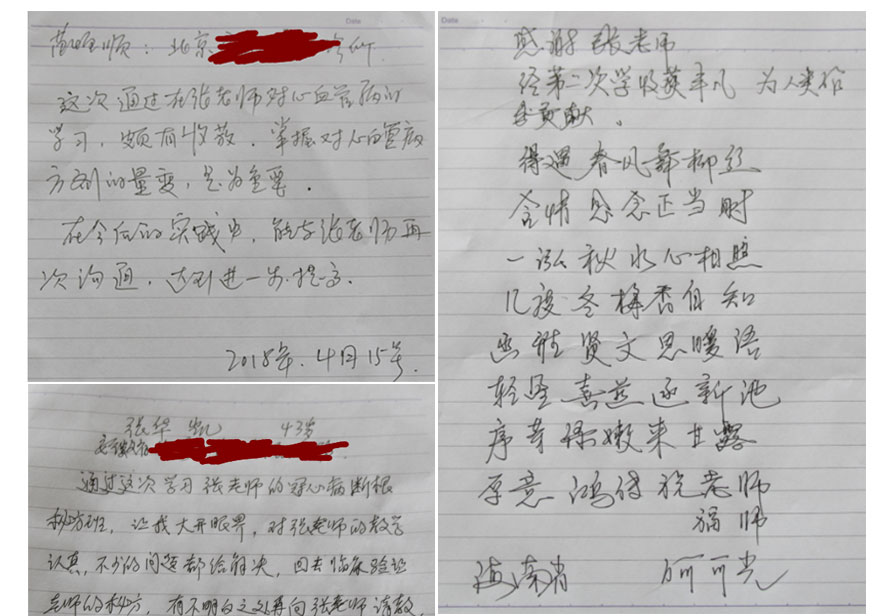 Date
顺：北京
这次通过在张老师对心血管病的
学习，颇有收获，掌握对心血管病
方剂的量变，尤为重要。
在今后的实践中，能与张老师再
次沟通，达到进一步提高。
2018年.4月15号.
张华 43岁
通过这次学习张老师的冠心病断根
秘方班，让我大开眼界，对张老师的教学
认真，不少的问题都给解决，回去临床验证
老师的秘方，有不明白之处再向张老师请教.
Date
感谢张老师
经第二次学收获丰凡 为人类作
贡献。
得遇春风舞柳丝
含情思念正当时
一泓秋水心相照
几度冬梅香自知
贤文思暖语
轻 燕逐新池
序 嫩来甘露
厚意鸿传祝老师
师
海南省 何可光